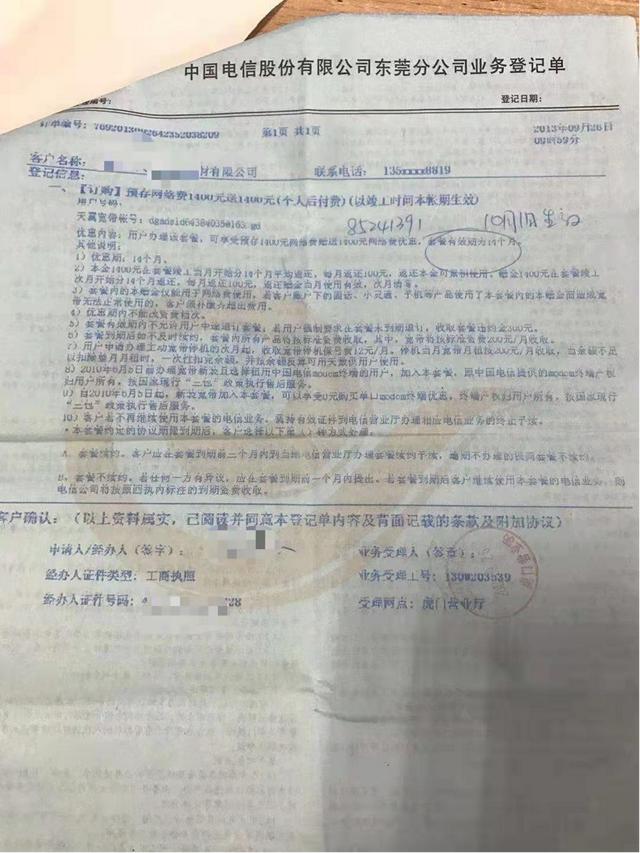 中国电信股份有限公司东莞分公司业务登记单
登记日期：
订单编号： 第1页 共1页 2013年09月26日
09时59分
客户名称：
登记信息： 材有限公司 联系电话： 135xxxx8819
一、【订购】预存网络费1400元送1400元(个人后付费)(以竣工时间本帐期生效)
用户号码：
天翼宽带帐号： 85241391 10月1日生效
优惠内容：用户办理该套餐，可享受预存1400元网络费赠送1400元网络费优惠，套餐有效期为14个月。
其他说明：
1）优惠期：14个月。
2）本金1400元在套餐竣工当月开始分14个月平均返还，每月返还100元，返还本金可累积使用，赠金1400元在套餐竣工
次月开始分14个月返还，每月返还100元，返还赠金当月使用有效，次月清零。
3）套餐内的本赠金仅能用于网络费使用，若客户账户下的固话、小灵通、手机等产品使用了本套餐内的本赠金而造成宽
带无法正常使用的，客户须补缴齐超出费用。
4）优惠期内不能改资费档次。
5）套餐有效期内不允许用户中途退订套餐，若用户强制要求在套餐未到期退订，收取套餐违约金300元。
6）套餐到期后如不及时续约，套餐内所有产品将按标准资费收取，其中，宽带将按标准资费200元/月收取。
7）用户申请办理主动宽带停机的次月起，收取宽带停机保号费12元/月。停机当月宽带月租按200元/月收取，当余额不足
以扣除整月月租时，一次性扣完余额，并按余额折算可用天数供用户使用。
8）2010年6月5日前办理宽带新装且选择租用中国电信modem终端的用户，加入本套餐，原中国电信提供的modem终端产权
归用户所有，按国家现行“三包”政策执行售后服务。
9）自2010年6月5日起，新装宽带加入本套餐，可以享受0元购买单口modem终端优惠，终端产权归用户所有，按国家现行
“三包”政策执行售后服务。
10）客户若不再继续使用本套餐的电信业务，需持有效证件到电信营业厅办理相应电信业务的终止手续。
*本套餐约定的协议期限到期后，客户选择以下第（ ）种方式处理。
A、套餐续约。客户应在套餐到期前三个月内到当地电信营业厅办理套餐续约手续，逾期不办理的视同套餐不续约。
B、套餐不续约。若任何一方有异议，应在套餐到期前一个月内提出。若套餐到期后客户继续使用本套餐的电信业务，则
电信公司将按原回执内标注的到期资费收取。
客户确认：（以上资料属实，已阅读并同意本登记单内容及背面记载的条款及附加协议）
申请人/经办人（签字）： 业务受理人（签章）：
经办人证件类型：工商执照 业务受理工号：
经办人证件号码： 受理网点：虎门营业厅